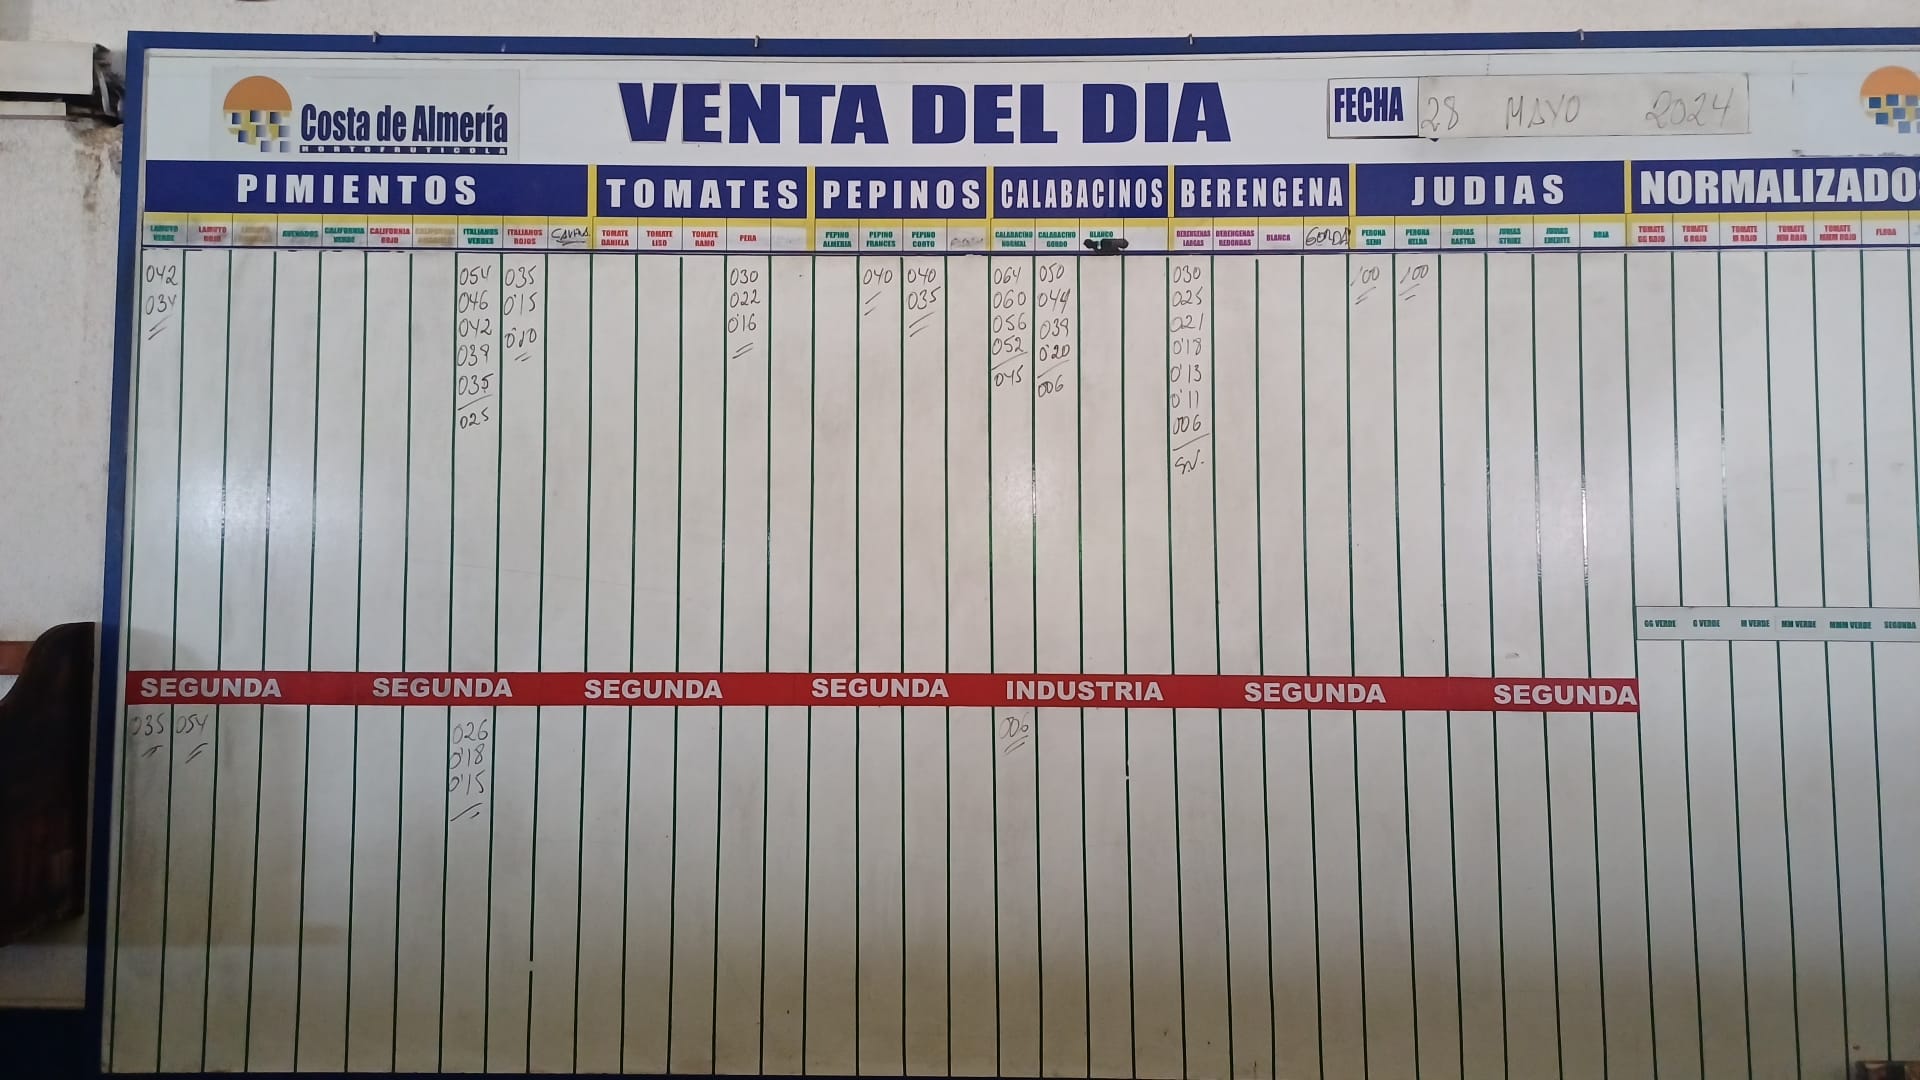 Costa de Almería
HORTOFRUTICOLA
VENTA DEL DIA
FECHA 28 MAYO 2024
PIMIENTOS TOMATES PEPINOS CALABACINOS BERENGENA JUDIAS NORMALIZADOS
LAMUYO VERDE LAMUYO ROJO LAMUYO AVENADOS CALIFORNIA VERDE CALIFORNIA ROJO CALIFORNIA AMARILLO ITALIANOS VERDES ITALIANOS ROJOS TOMATE DANIELA TOMATE LISO TOMATE RAMO PERA PEPINO ALMERIA PEPINO FRANCES PEPINO CORTO CALABACINO NORMAL CALABACINO GORDO BLANCO BERENGENAS LARGAS BERENGENAS REDONGAS BLANCA GORDA PERONA SEMI PERONA HELDA JUDIAS RASTRA JUDIAS STRIKE JUDIAS EMERITE ROJA TOMATE GG ROJO TOMATE G ROJO TOMATE M ROJO TOMATE MM ROJO TOMATE MMM ROJO FLOJA
042 054 035 030 040 040 064 050 030 100 100
034 046 0'15 022 035 060 044 025
042 0'10 0'16 056 039 021
038 052 0'20 0'18
035 045 006 0'13
025 0'11
006
S.V.
GG VERDE G VERDE M VERDE MM VERDE MMM VERDE SEGUNDA
SEGUNDA SEGUNDA SEGUNDA SEGUNDA INDUSTRIA SEGUNDA SEGUNDA
035 054 026 006
0'18
0'15